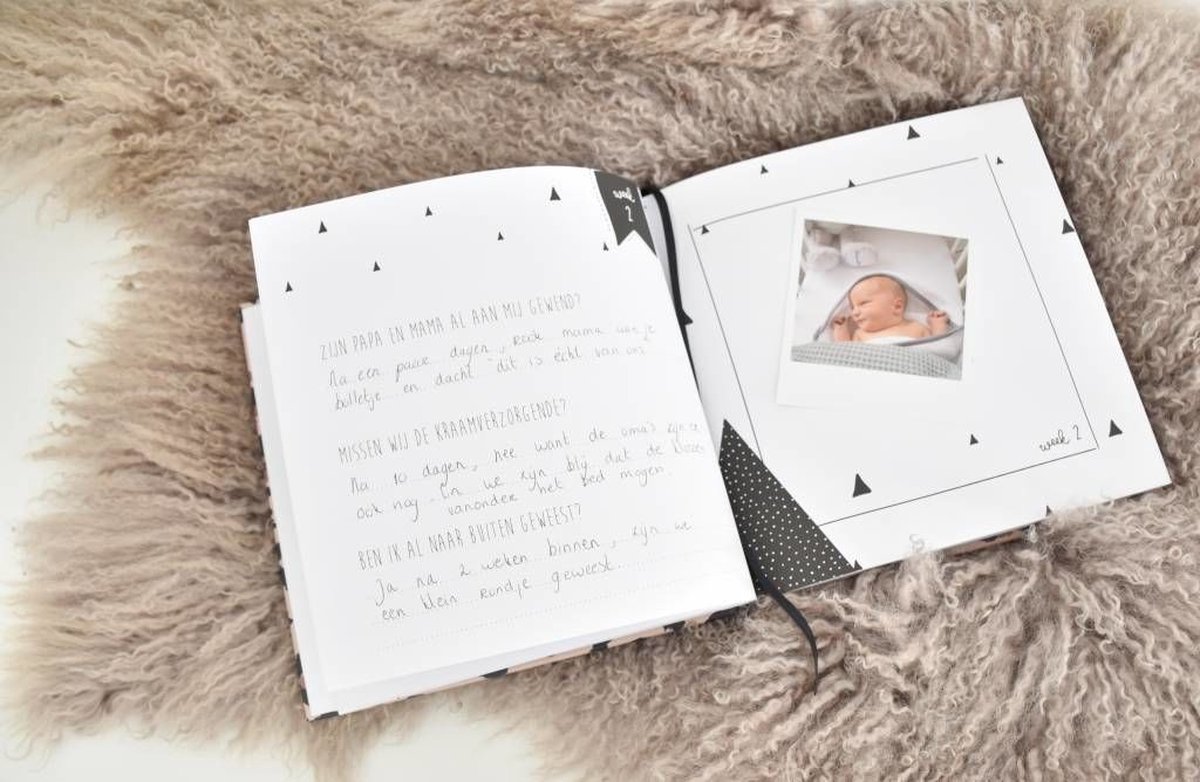 week
2
ZIJN PAPA EN MAMA AL AAN MIJ GEWEND?
Na een paar dagen, rook mama aan je
bolletje en dacht "dit is écht van ons"
MISSEN WIJ DE KRAAMVERZORGENDE?
Na 10 dagen, nee want de oma's zijn er
ook nog. En we zijn blij dat de klossen
vanonder het bed mogen.
BEN IK AL NAAR BUITEN GEWEEST?
Ja na 2 weken binnen, zijn we
een klein rondje geweest
week 2